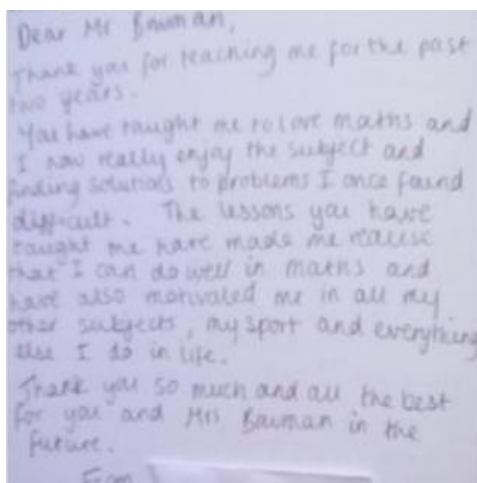 Dear Mr Bauman,
Thank you for teaching me for the past
two years.
You have taught me to love maths and
I now really enjoy the subject and
finding solutions to problems I once found
difficult. The lessons you have
taught me have made me realise
that I can do well in maths and
have also motivated me in all my
other subjects, my sport and everything
else I do in life.
Thank you so much and all the best
for you and Mrs Bauman in the
future.
From